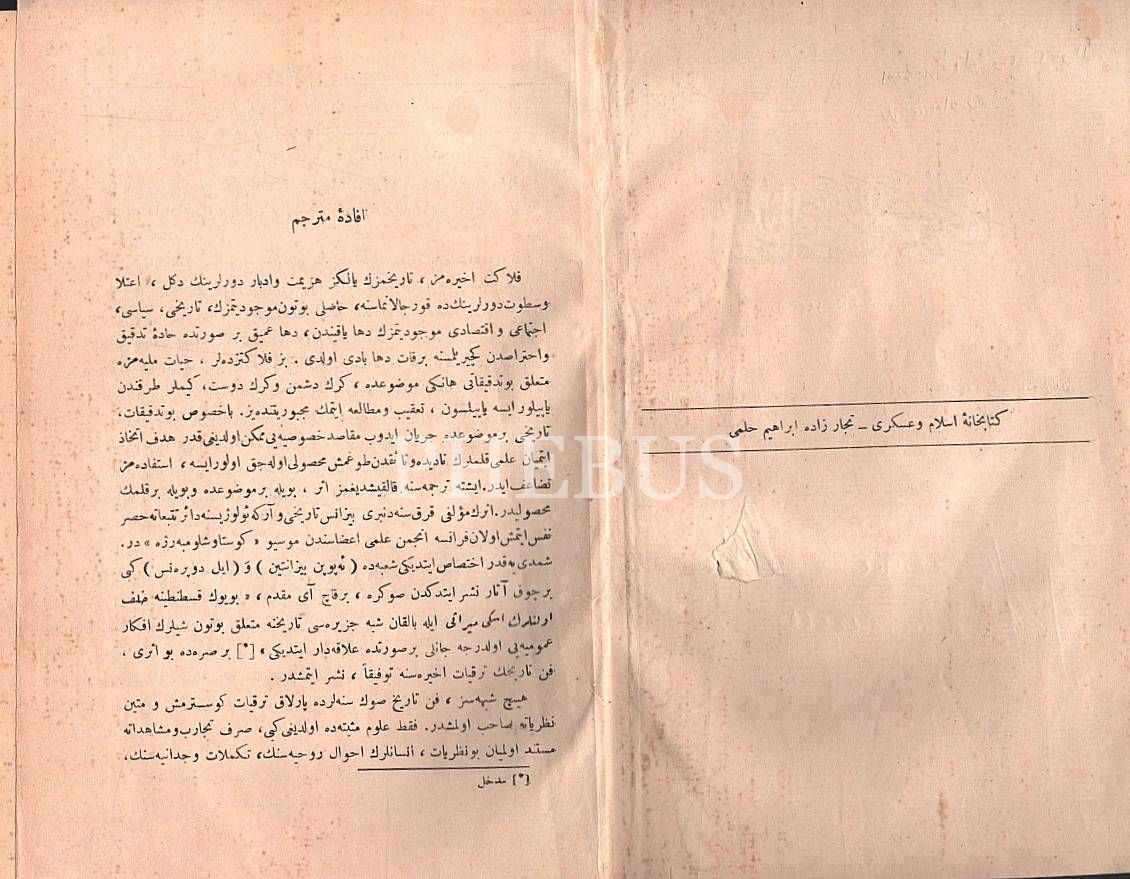 كتابخانهٔ اسلام وعسكری ـ تجار زاده ابراهيم حلمی
افادهٔ مترجم
فلاكت اخيره‌مز ، تاريخمزك يالكز هزيمت وادبار دورلرينك دكل ، اعتلا
وسطوت دورلرينك ده قورجالانماسنه، حاصلی بوتون موجوديتمزك، تاريخی، سياسی،
اجتماعی واقتصادی موجوديتمزك دها ياقيندن، دها عميق بر صورتده حادهٔ تدقيق
واحتراصدن كچيريلمسنه برقات دها بادی اولدی . بز فلاكتزده‌لر ، حيات مليه‌مزه
متعلق بوتدقيقاتی هانكی موضوعده ، كرك دشمن وكرك دوست، كيملر طرفندن
ياپيلور ايسه ياپيلسون ، تعقيب ومطالعه ايتمك مجبوريتنده‌يز. باخصوص بوتدقيقات،
تاريخی برموضوعده جريان ايدوب مقاصد خصوصيه‌يی ممكن اولديغی قدر هدف اتخاذ
ايتميان علمی قلملرك ناديده وتا نقدن طوغمش محصولی اوله‌جق اولورايسه ، استفاده‌مز
تضاعف ايدر. ايشته ترجمه‌سنه قالقيشديغمز اثر ، بويله برموضوعده وبويله برقلمك
محصوليدر. اثرك مؤلفی قرق سنه‌دنبری بيزانس تاريخی وآركه‌ئولوژيسنه دائر تتبعاته حصر
نفس ايتمش اولان فرانسه انجمن علمی اعضاسندن موسيو « كوستاو شلومبه‌رژه » در.
شمدی‌يه‌قدر اختصاص ايتديكی شعبه‌ده ( ئه‌پوپن بيزانتين ) و ( ايل دو پره‌نس ) كبی
برچوق آثار نشر ايتدكدن صوكره ، برقاچ آی مقدم ، « بويوك قسطنطينه خلف
اولنلرك اسكی ميراثی ايله بالقان شبه جزيره‌سی تاريخنه متعلق بوتون شيلرك افكار
عموميه‌يی اولدرجه جانلی برصورتده علاقه‌دار ايتديكی » [*] بر صره‌ده بو اثری ،
فن تاريخك ترقيات اخيره‌سنه توفيقاً ، نشر ايتمشدر .
هيچ شبهه‌سز ، فن تاريخ صوك سنه‌لرده پارلاق ترقيات كوسترمش و متين
نظرياته صاحب اولمشدر. فقط علوم مثبته‌ده اولديغی كبی، صرف تجارب ومشاهداته
مستند اولميان بونظريات ، انسانلرك احوال روحيه‌سنك، تكملات وجدانيه‌سنك،
[*] مدخل
PHEBUS